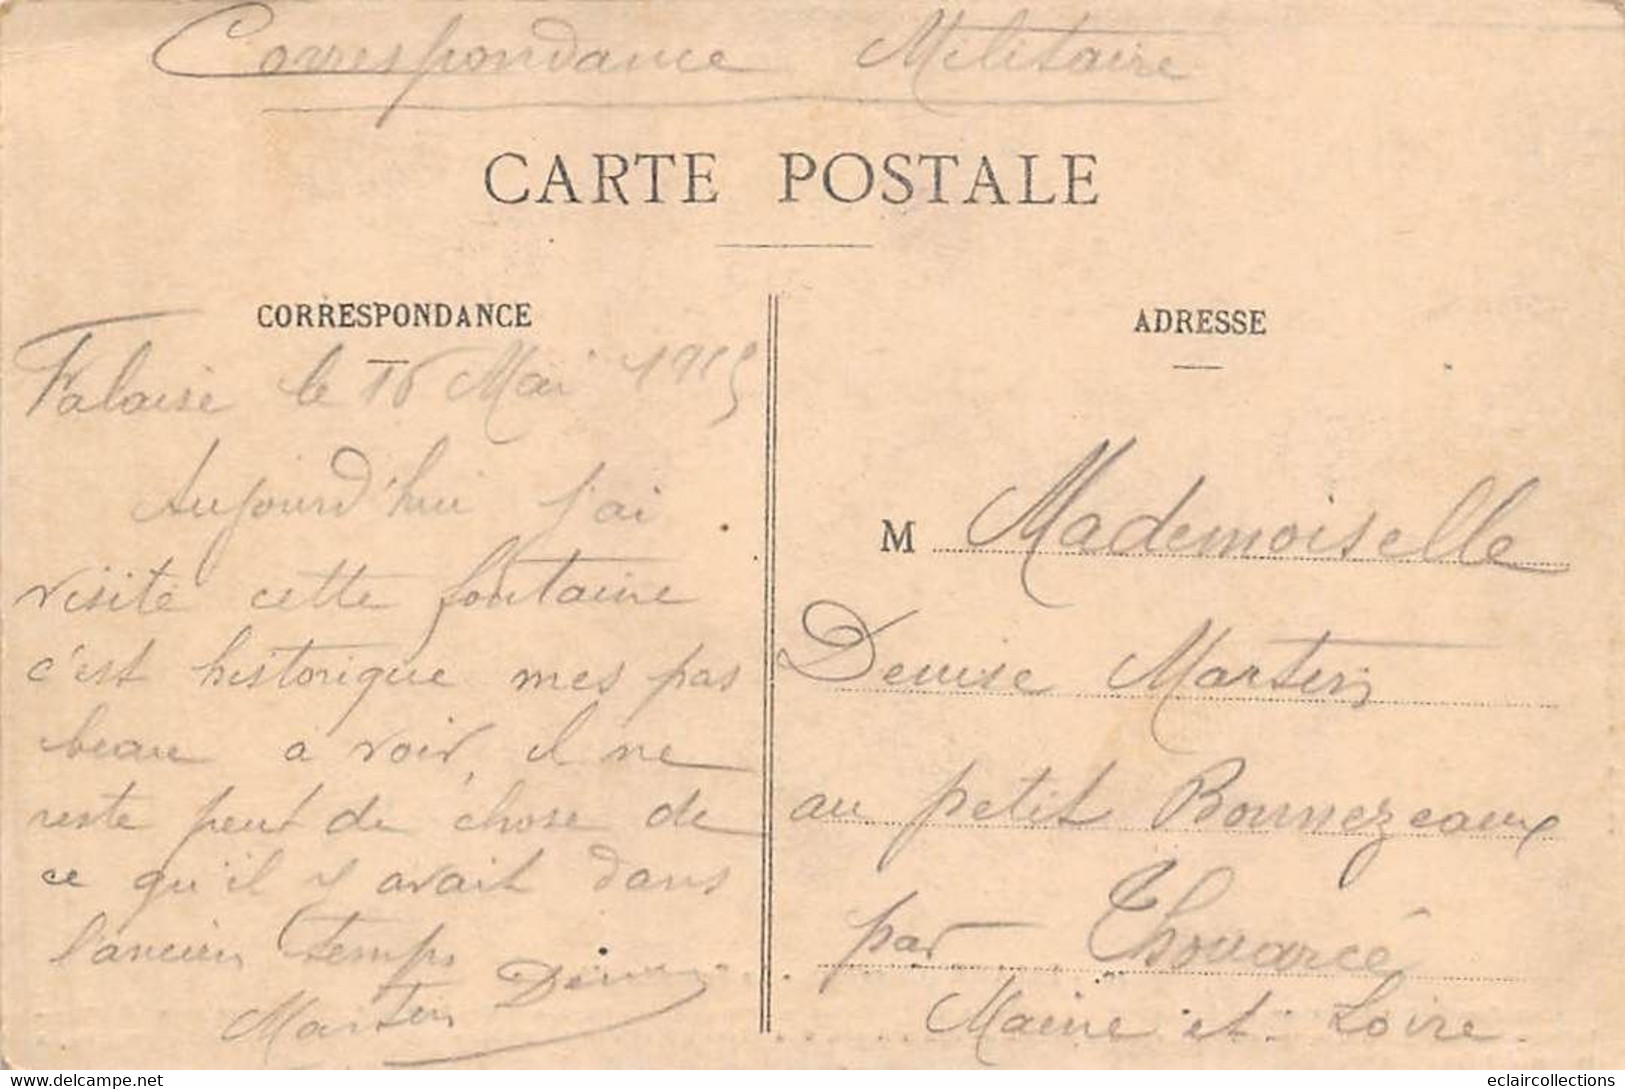 Correspondance Militaire
CARTE POSTALE
CORRESPONDANCE
Falaise le 16 Mai 1915
Aujourd'hui j'ai
visité cette fontaine
c'est historique mes pas
beau a voir, il ne
reste peut de chose de
ce qu'il y avait dans
l'ancien temps
Martin
ADRESSE
M Mademoiselle
Denise Martin
au petit Bonnezeaux
par Thouarcé
Maine et Loire
eclaircollections